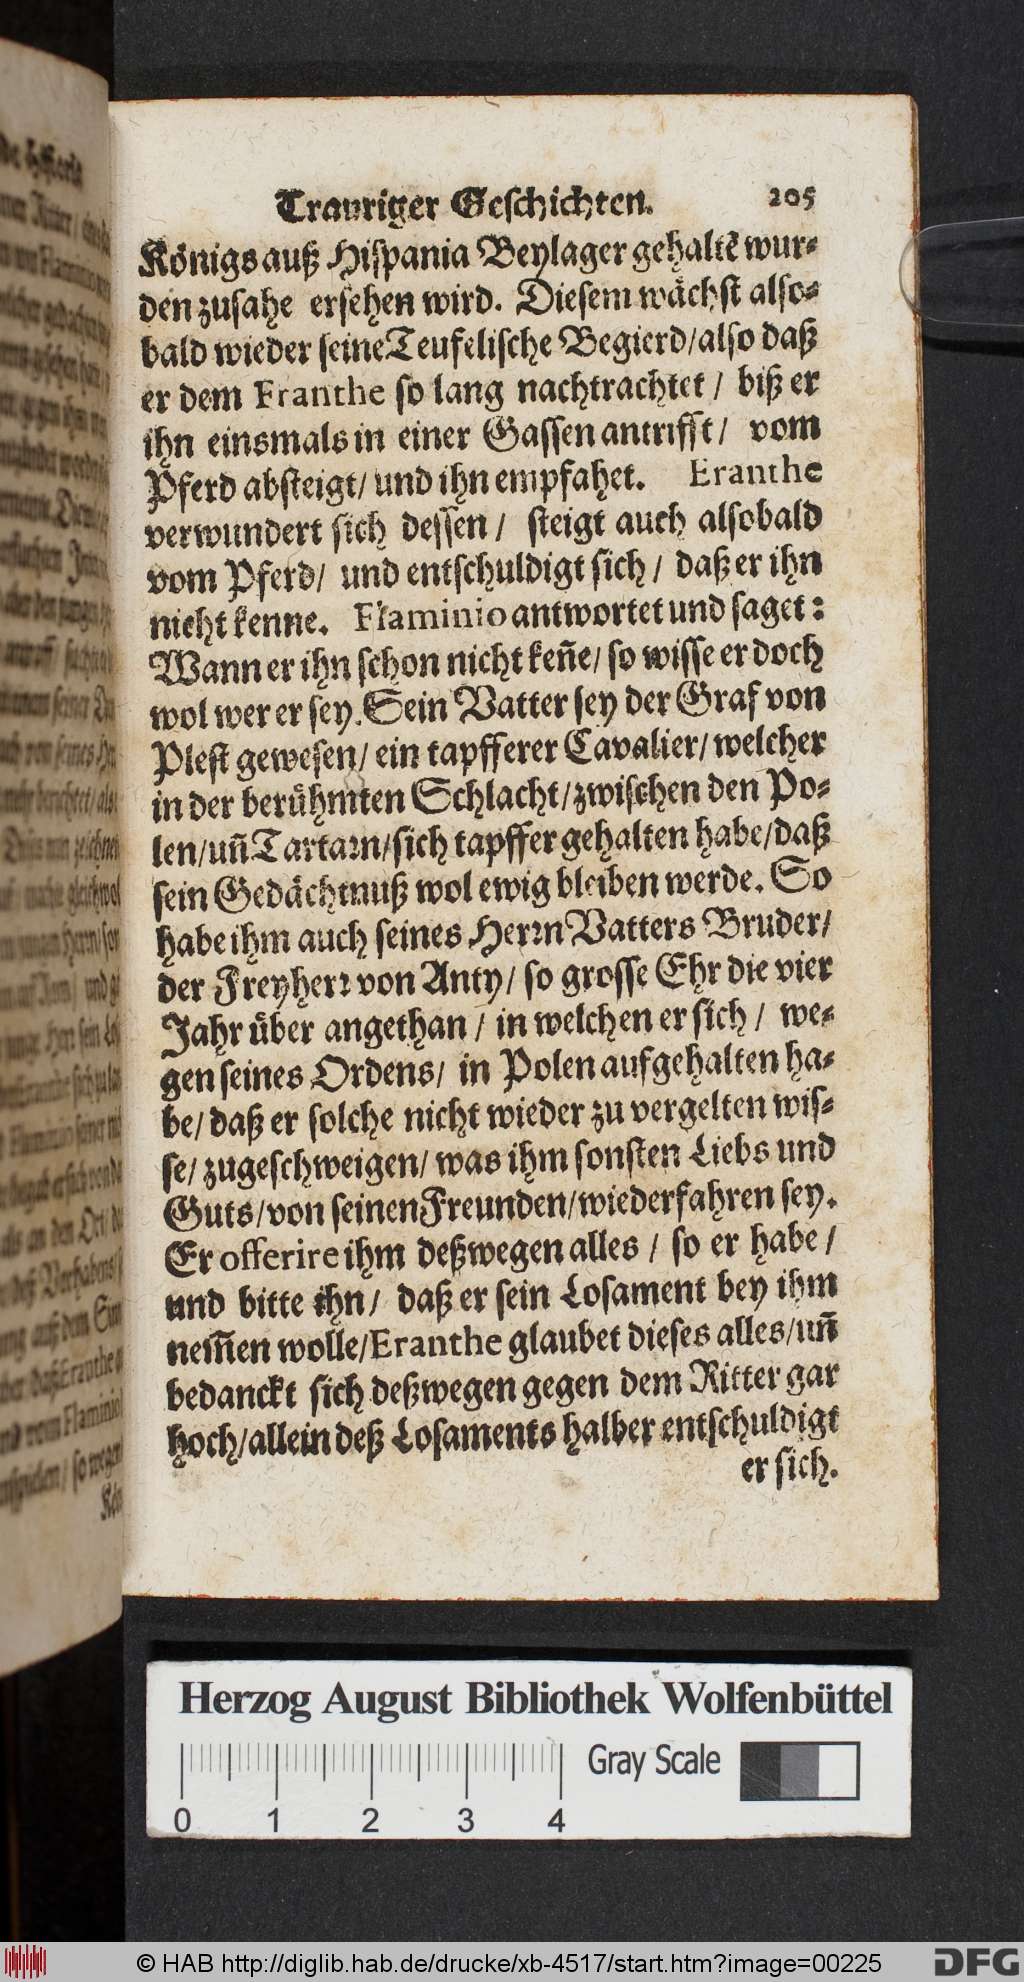 Trauriger Geschichten. 205
Königs auß Hispania Beylager gehaltē wur-
den zusahe ersehen wird. Diesem wächst also-
bald wieder seine Teufelische Begierd/also daß
er dem Eranthe so lang nachtrachtet / biß er
ihn einsmals in einer Gassen antrifft / vom
Pferd absteigt/ und ihn empfahet. Eranthe
verwundert sich dessen / steigt auch alsobald
vom Pferd/ und entschuldigt sich / daß er ihn
nicht kenne. Flaminio antwortet und saget:
Wann er ihn schon nicht keñe/ so wisse er doch
wol wer er sey. Sein Vatter sey der Graf von
Plest gewesen/ ein tapfferer Cavalier/ welcher
in der berühmten Schlacht/zwischen den Po-
len/uñ Tartarn/sich tapffer gehalten habe/daß
sein Gedächtnuß wol ewig bleiben werde. So
habe ihm auch seines Herrn Vatters Bruder/
der Freyherr von Anty/ so grosse Ehr die vier
Jahr über angethan / in welchen er sich / we-
gen seines Ordens/ in Polen aufgehalten ha-
be/ daß er solche nicht wieder zu vergelten wis-
se/ zugeschweigen/ was ihm sonsten Liebs und
Guts/von seinen Freunden/wiederfahren sey.
Er offerire ihm deßwegen alles / so er habe /
und bitte ihn/ daß er sein Losament bey ihm
nem̃en wolle/Eranthe glaubet dieses alles/uñ
bedanckt sich deßwegen gegen dem Ritter gar
hoch/allein deß Losaments halber entschuldigt
er sich.
Herzog August Bibliothek Wolfenbüttel
Gray Scale
0 1 2 3 4
© HAB http://diglib.hab.de/drucke/xb-4517/start.htm?image=00225
DFG